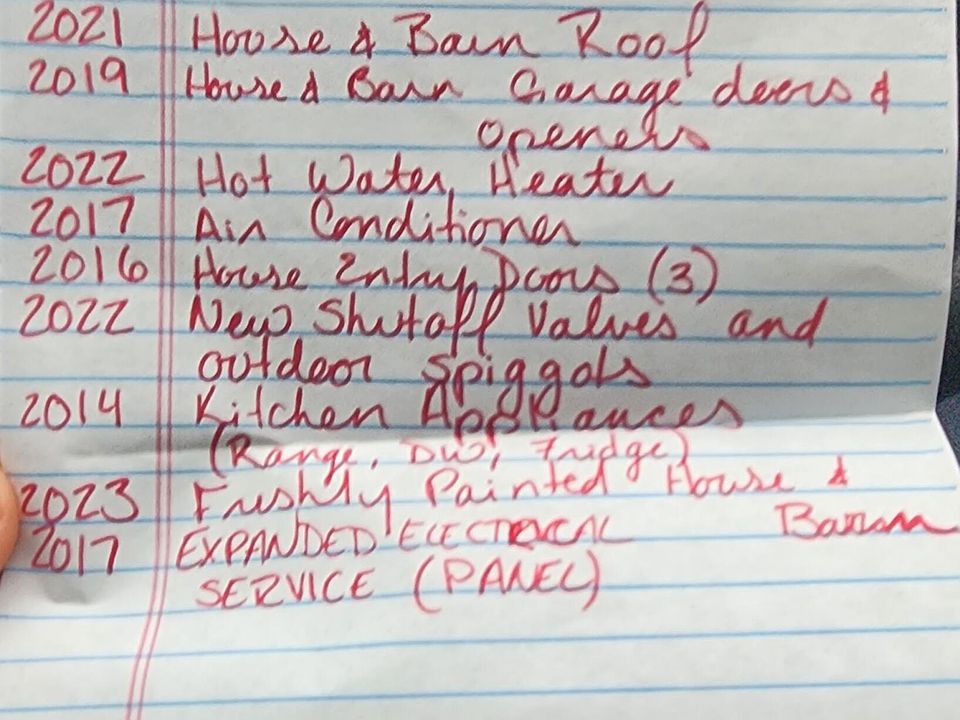 2021 House & Barn Roof
2019 House & Barn Garage doors &
openers
2022 Hot Water Heater
2017 Air Conditioner
2016 House Entry Doors (3)
2022 New Shutoff Valves and
outdoor spiggots
2014 Kitchen Appliances
(Range, DW, Fridge)
2023 Freshly Painted House &
Barn
2017 EXPANDED ELECTRICAL
SERVICE (PANEL)